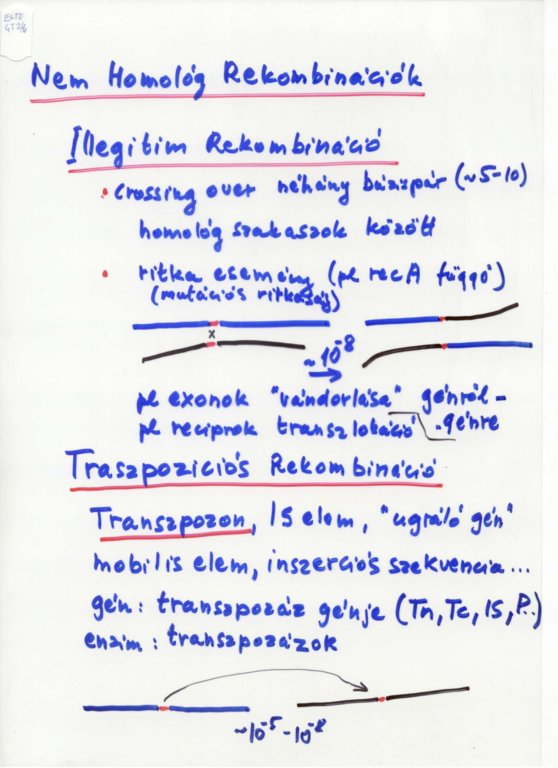 ELTE
GT2/6
Nem Homológ Rekombinációk
Illegitim Rekombináció
• crossing over néhány bázispár (~5-10)
homológ szakaszok között
• ritka esemény (pl recA függő)
(mutációs ritkaság)
x
~10⁻⁸
pl exonok "vándorlása" génről-
pl reciprok transzlokáció -génre
Traszpozíciós Rekombináció
Transzpozon, IS elem, "ugráló gén"
mobilis elem, inszerciós szekvencia...
gén: transzpozáz génje (Tn, Tc, IS, P..)
enzim: transzpozázok
~10⁻⁵-10⁻⁸